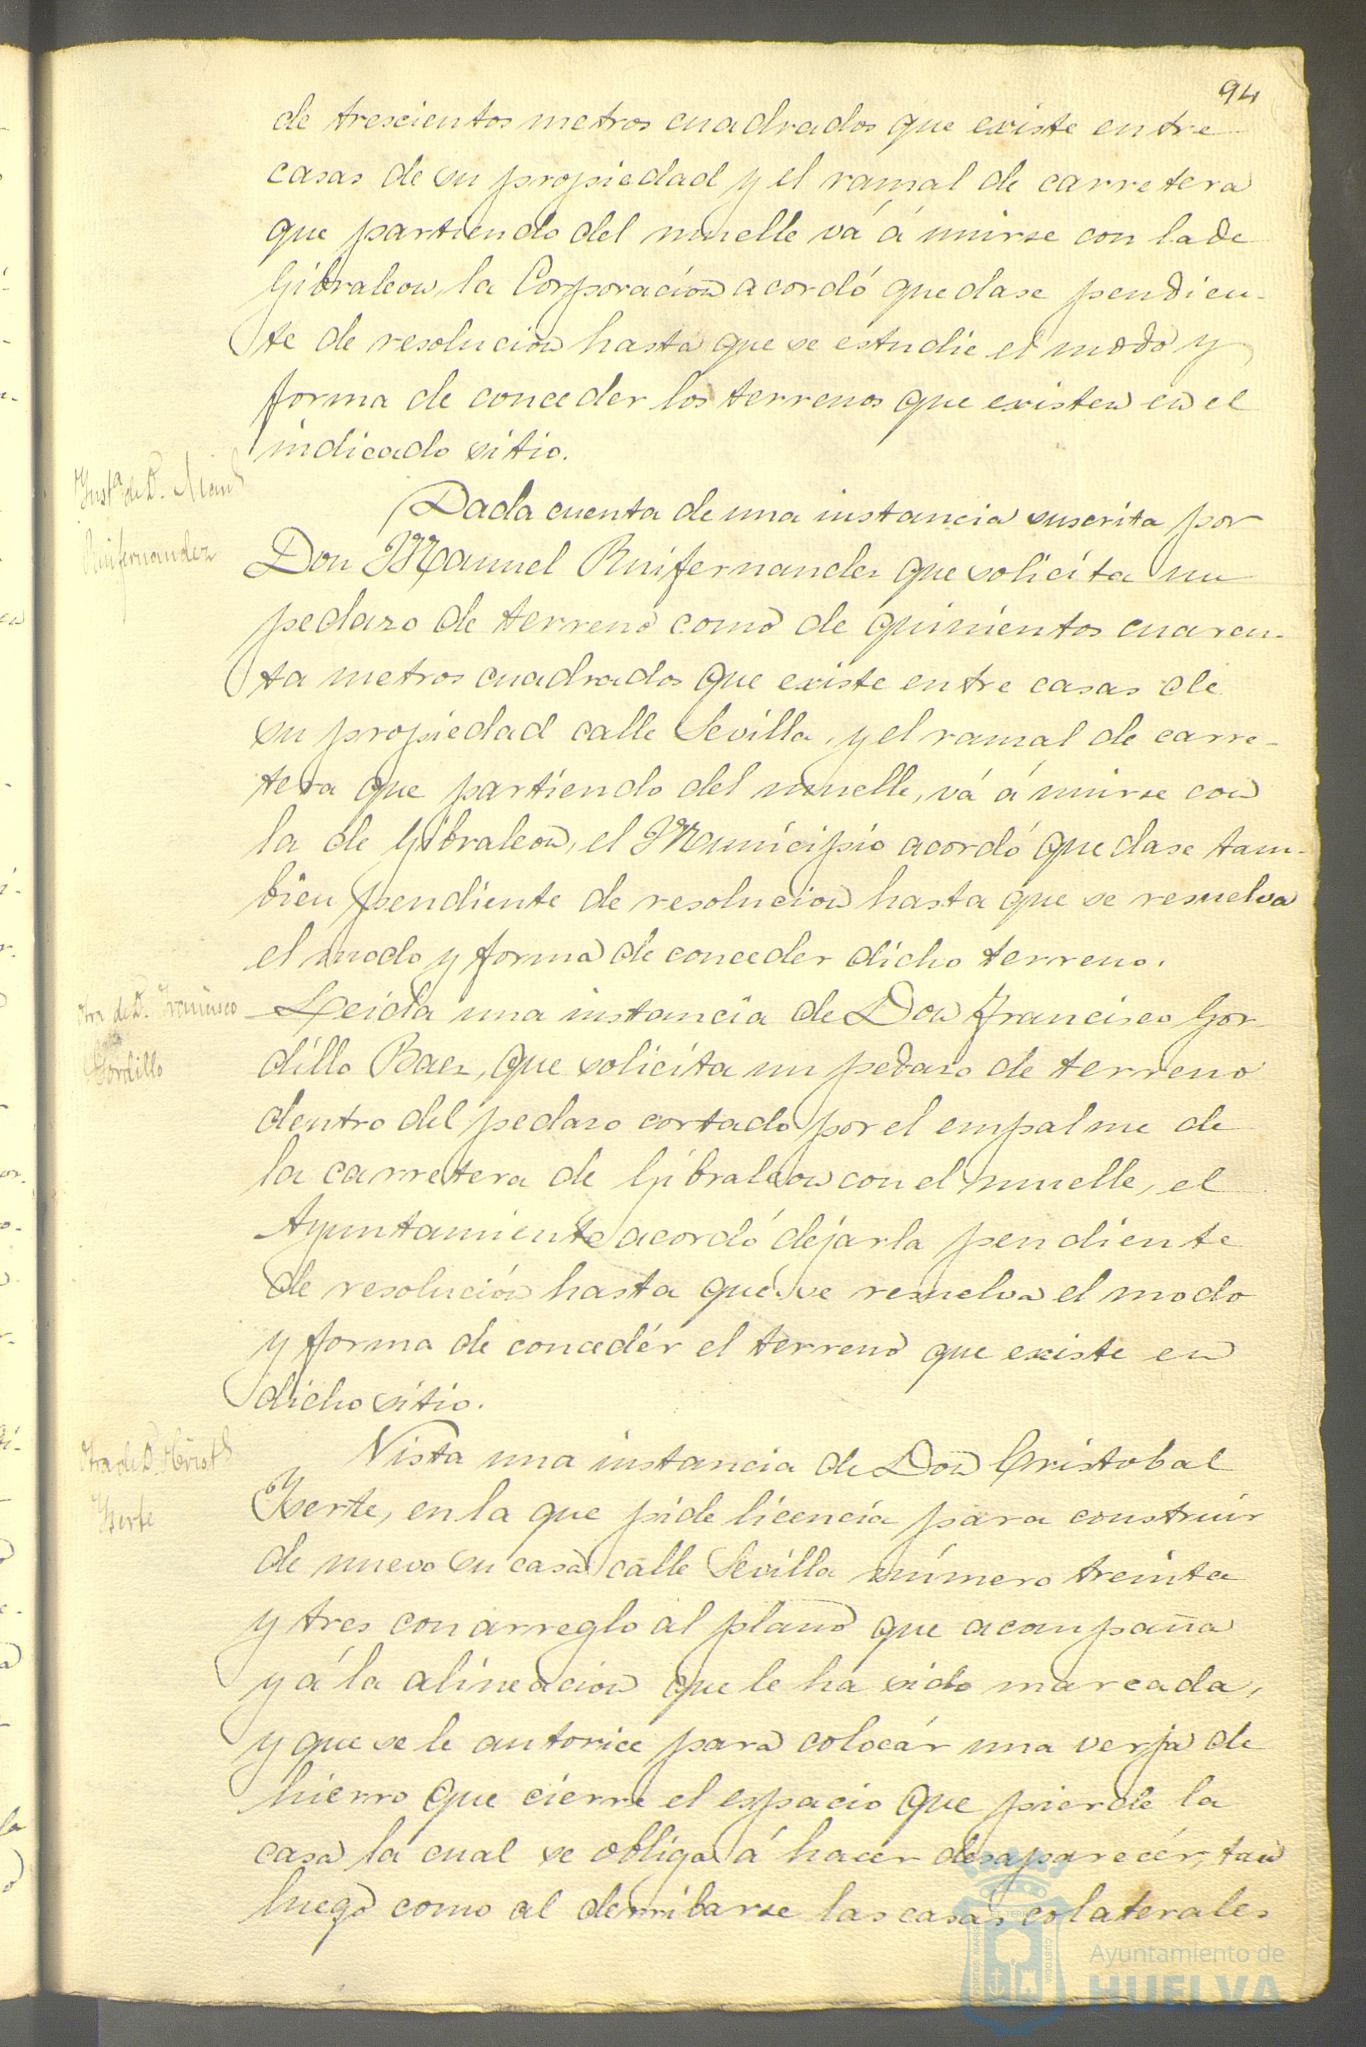 94
de trescientos metros cuadrados que existe entre
casas de su propiedad y el ramal de carretera
que partiendo del muelle vá á unirse con la de
Gibraleon, la Corporación acordó quedase pendien-
te de resolucion hasta que se estudie el modo y
forma de conceder los terrenos que existen en el
indicado sitio.
Ynsta. de D. Man
Ruifernandez
Dada cuenta de una instancia suscrita por
Don Manuel Ruifernandez que solicita un
pedazo de terreno como de quinientos cuaren-
ta metros cuadrados que existe entre casas de
su propiedad calle Sevilla, y el ramal de carre-
tera que partiendo del muelle, vá á unirse con
la de Gibraleon, el Municipio acordó quedase tam-
bien pendiente de resolucion hasta que se resuelva
el modo y forma de conceder dicho terreno.
Otra de D. Francisco
Gordillo
Leida una instancia de Don Francisco Gor
dillo Baez, que solicita un pedazo de terreno
dentro del pedazo cortado por el empalme de
la carretera de Gibraleon con el muelle, el
Ayuntamiento acordó dejarla pendiente
de resolución hasta que se resuelva el modo
y forma de concedér el terreno que existe en
dicho sitio.
Otra de D. Crist
Yserte
Vista una instancia de Don Cristobal
Yserte, en la que pide licencia para construir
de nuevo su casa calle Sevilla número treinta
y tres con arreglo al plano que acompaña
y á la alineacion que le ha sido marcada,
y que se le autorice para colocár una verja de
hierro que cierre el espacio que pierde la
casa la cual se obliga á hacér desaparecér, tan
luego como al derribarse las casas colaterales
Ayuntamiento de
HUELVA